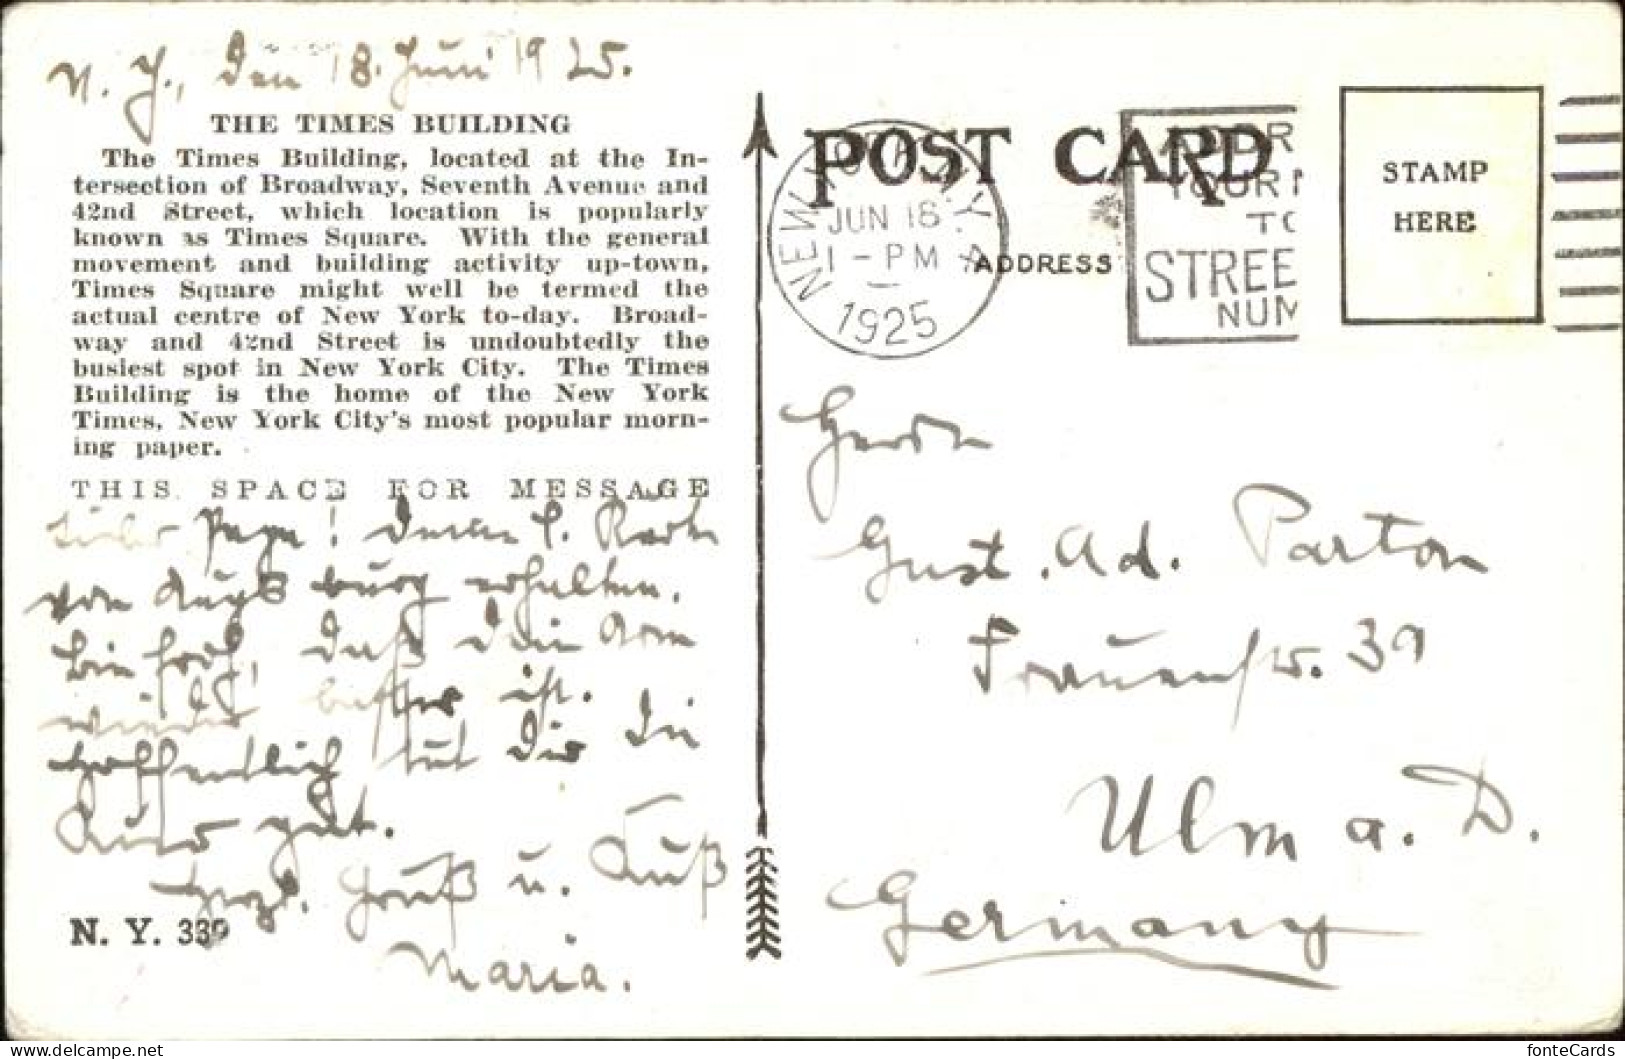 N. Y., den 18. Juni 1925.
THE TIMES BUILDING
The Times Building, located at the In-
tersection of Broadway, Seventh Avenue and
42nd Street, which location is popularly
known as Times Square. With the general
movement and building activity up-town,
Times Square might well be termed the
actual centre of New York to-day. Broad-
way and 42nd Street is undoubtedly the
busiest spot in New York City. The Times
Building is the home of the New York
Times, New York City's most popular morn-
ing paper.
THIS SPACE FOR MESSAGE
Lieber Papa! Deine l. Karte
von Augsburg erhalten.
Bin froh, daß dein Arm
wieder besser ist.
Hoffentlich tut Dir die
Kur gut.
Herzl. Gruß u. Kuß
Maria.
N. Y. 339
POST CARD
NEW YORK, N.Y.
JUN 18
1-PM
1925
ADDRESS
YOUR M
TO
STREE
NUM
STAMP
HERE
Herrn
Gust. Ad. Parton
Frauenstr. 39
Ulm a. D.
Germany
fonteCards